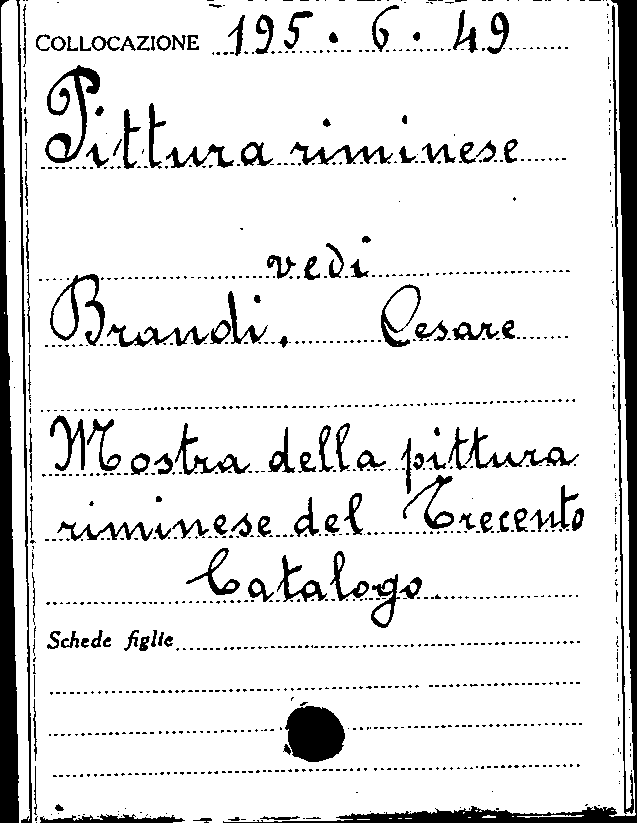 COLLOCAZIONE 195. 6. 49
Pittura riminese
vedi
Brandi, Cesare
Mostra della pittura
riminese del Trecento
Catalogo
Schede figlie